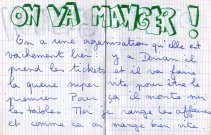 ON VA MANGER !
On a une organisation qu'elle est
vachement bien : y a Denan il
prend les tickets et il va faire
la queue super vite pour être le
premier. Pour ça il monte sur
les tables. Moi je range les affaires
et comme ça on mange bien vite